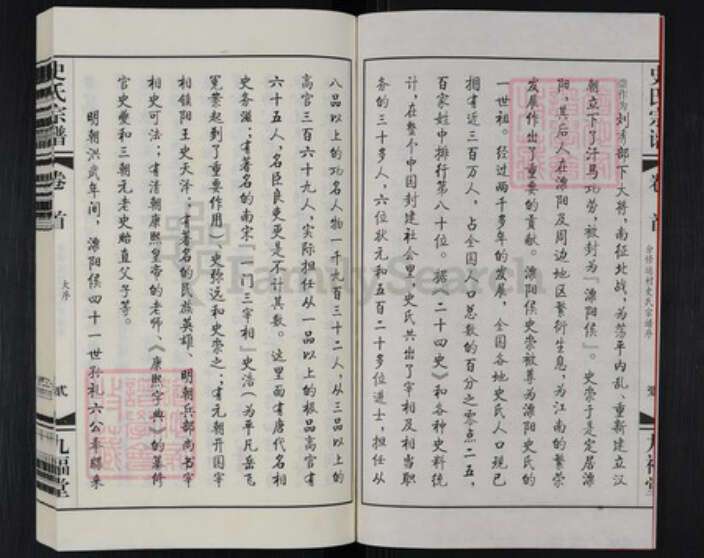 史氏宗谱
卷首
分修遥村史氏宗谱序
九福堂
崇作为刘秀部下大将，南征北战，为荡平内乱、重新建立汉
朝立下了汗马功劳，被封为『溧阳侯』。史崇于是定居溧
阳，其后人在溧阳及周边地区繁衍生息，为江南的繁荣
发展作出了重要的贡献。溧阳侯史崇被尊为溧阳史氏的
一世祖。经过两千多年的发展，全国各地史氏人口现已
拥有近三百万人，占全国人口总数的百分之零点二五，
百家姓中排行第八十位。据《二十四史》和各种史料统
计，在整个中国封建社会里史氏共出了宰相及相当职
务的三十多人，六位状元和五百二十多位进士，担任从
八品以上的功名人物一千七百三十二人，从三品以上的
高官三百六十九人，实际担任从一品以上的极品高官有
六十五人，名臣良吏更是不计其数。这里面有唐代名相
史务滋；有著名的南宋「一门三宰相」史浩（为平凡岳飞
冤案起到了重要作用）、史弥远和史嵩之；有元朝开国宰
相镇阳王史天泽；有著名的民族英雄、明朝兵部尚书宰
相史可法；有清朝康熙皇帝的老师、《康熙字典》的纂修
官史夔和三朝元老史贻直父子等。
明朝洪武年间，溧阳侯四十一世孙礼六公奉驿来
史氏宗谱
卷首
大序
贰
九福堂
FamilySearch